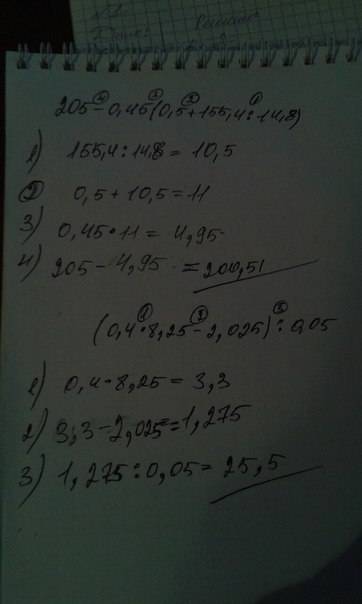 205 - 0,45(0,5+155,4:14,8)
1) 155,4:14,8 = 10,5
2) 0,5+10,5=11
3) 0,45·11 = 4,95
4) 205 - 4,95 = 200,51
(0,4·8,25-2,025):0,05
1) 0,4·8,25 = 3,3
2) 3,3-2,025=1,275
3) 1,275:0,05= 25,5